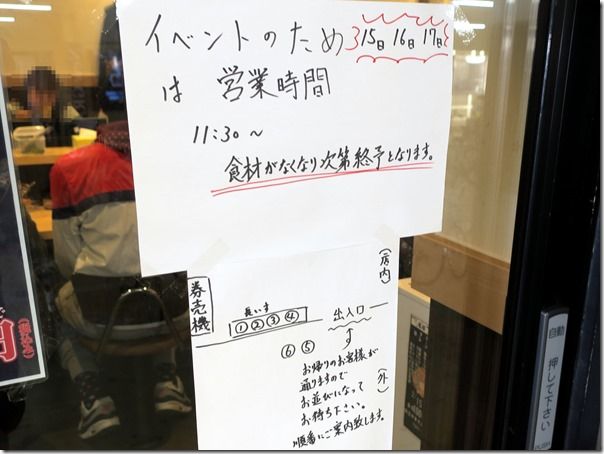 イベントのため 15日 16日 17日
は 営業時間
11:30～
食材がなくなり次第終予となります。
(店内)
券売機
長いす
①②③④
出入口
⑥⑤
(外)
お帰りのお客様が
通りますので
お並びになって
お待ち下さい。
順番にご案内致します。
自動
押して下さい
PUSH
円